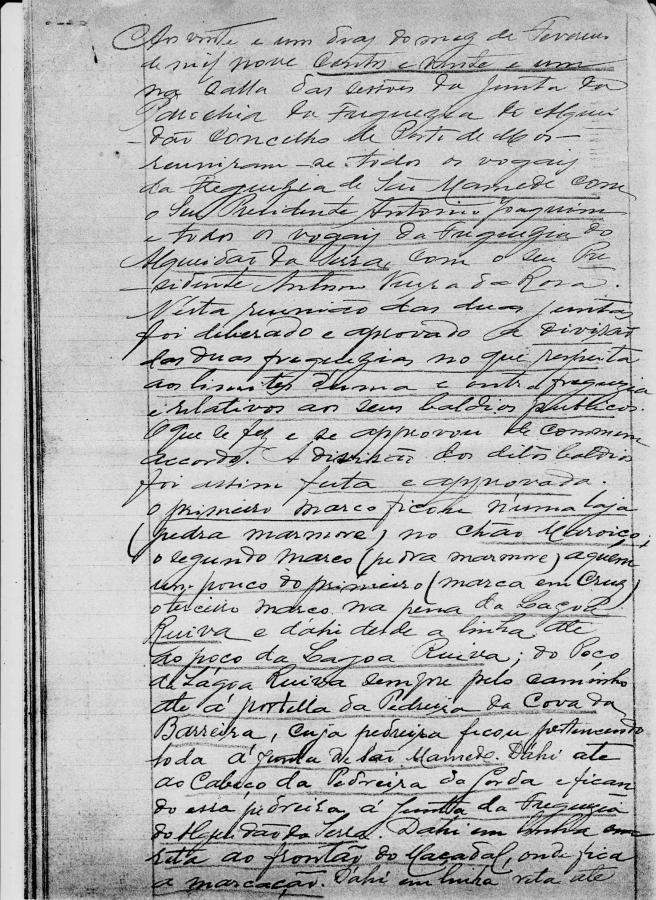 Aos vinte e um dias do mez de Fevereiro
de mil nove centos e vinte e um
na salla das sessões da Junta da
Parochia da Freguezia do Alquei
-dão Concelho de Porto de Mós-
reuniram-se todos os vogais
da Freguezia de São Mamede com
o seu Presidente Antonio Joaquim
e todos os vogais da Freguezia do
Alqueidão da Serra, com o seu Pre
-sidente Antonio Vieira da Rosa.
Nesta reunião das duas juntas
foi deliberado e aprovado a divisão
das duas freguezias no que respeita
aos limites d'uma e outra freguezia
e relativos aos seus baldios publicos.
O que se fez e se approvou de commum
accordo. A divisão dos ditos baldios
foi assim feita e approvada.
o primeiro marco ficou n'uma laja
(pedra marmore) no Chão
o segundo marco (pedra marmore) aquém
um pouco do primeiro (marca em Cruz)
o terceiro marco na pena da Lagoa
Ruiva e dáhi desde a linha até
ao poço da Lagoa Ruiva; do Poço
da Lágoa Ruiva sempre pelo caminho
até á portella da Pedreira da Cova da
Barreira, cuja pedreira ficou pertencendo
toda á Junta de São Mamede. Dáhi até
ao Cabeço da Pedreira da Corda e fican
do essa pedreira á Junta da Freguezia
do Alqueidão da Serra. Dahi em linha
réta ao frontão do Cacadal, onde fica
a marcação. Dáhi em linha réta até